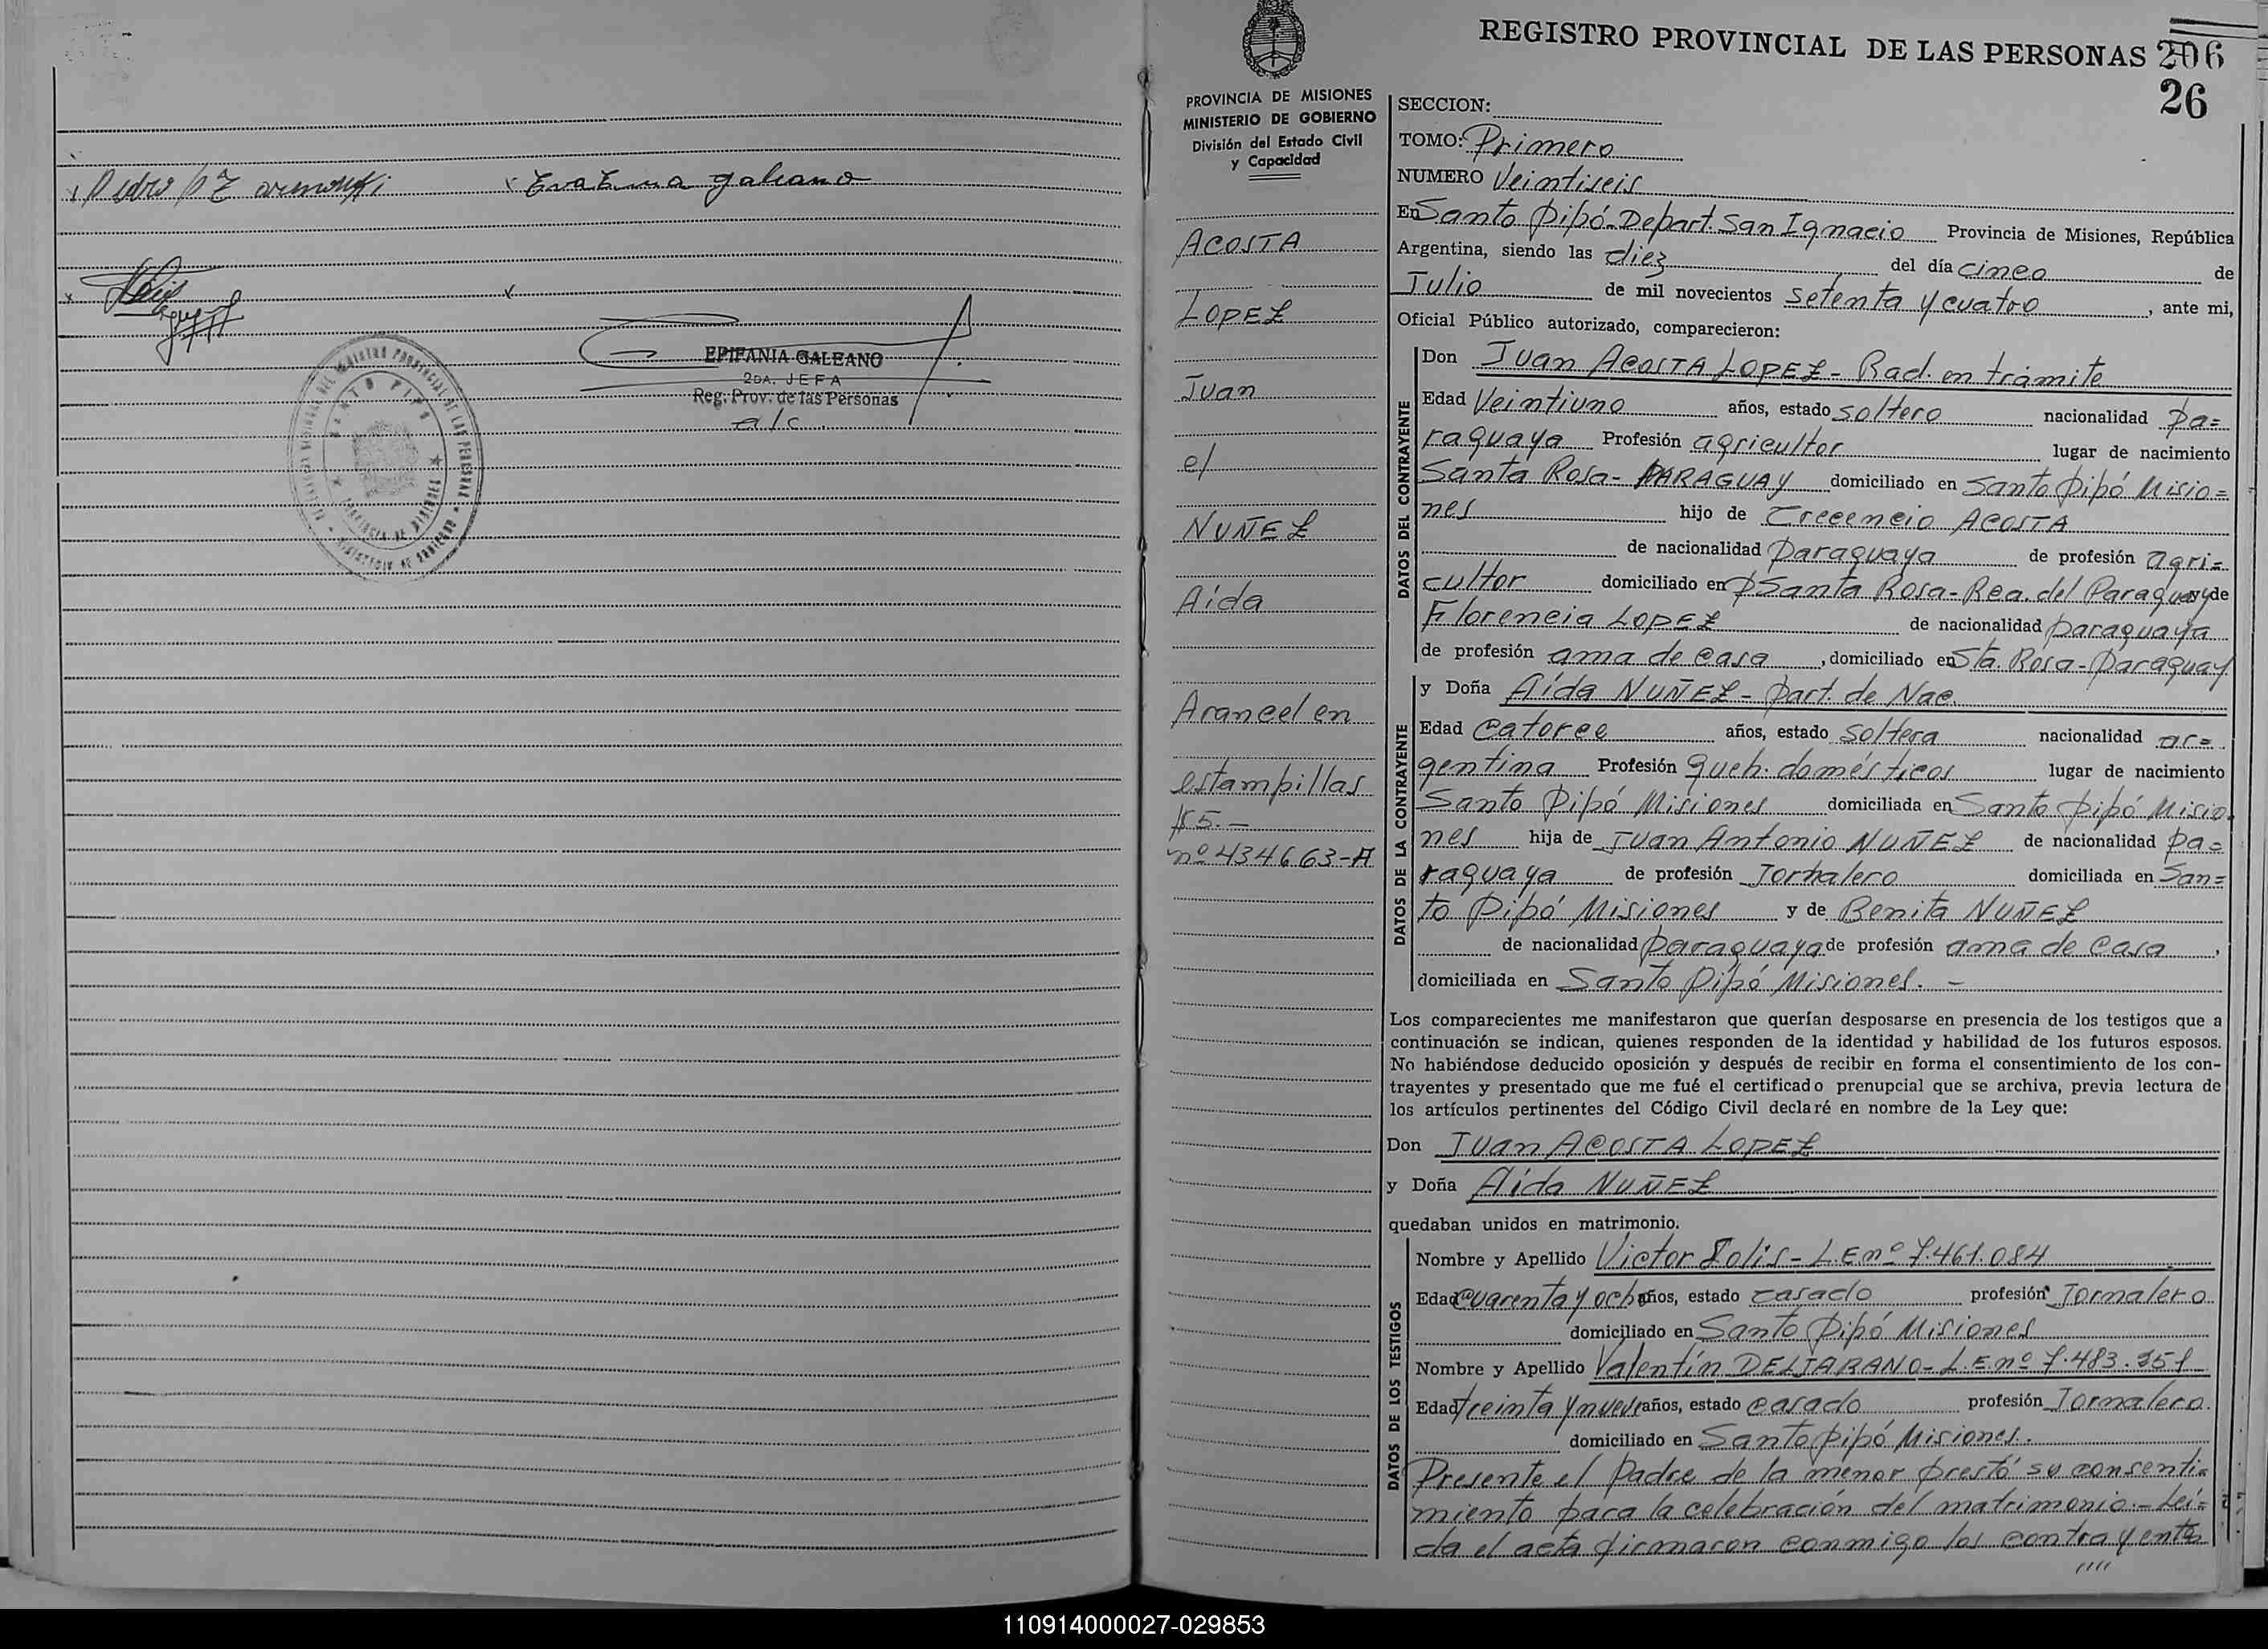 Eva Ema Galeano
EPIFANIA GALEANO
2DA. JEFA
Reg. Prov. de las Personas
a/c.
REGISTRO PROVINCIAL DE LAS PERSONAS 206
26
PROVINCIA DE MISIONES
MINISTERIO DE GOBIERNO
División del Estado Civil
y Capacidad
ACOSTA
LOPEZ
Juan
c/
NUÑEZ
Aída
Arancel en
estampillas
$5.—
nº 434663-A
SECCION:
TOMO: Primero
NUMERO Veintiseis
En Santo Pipó-Depart. San Ignacio Provincia de Misiones, República
Argentina, siendo las diez del día cinco de
Julio de mil novecientos setenta y cuatro, ante mi,
Oficial Público autorizado, comparecieron:
DATOS DEL CONTRAYENTE
Don Juan ACOSTA LOPEZ - Rad. en trámite
Edad Veintiuno años, estado soltero nacionalidad pa=
raguaya Profesión agricultor lugar de nacimiento
Santa Rosa - PARAGUAY domiciliado en Santo Pipó Misio=
nes hijo de Crecencio ACOSTA
de nacionalidad paraguaya de profesión agri=
cultor domiciliado en Santa Rosa - Rca. del Paraguay y de
Florencia LOPEZ de nacionalidad paraguaya
de profesión ama de casa, domiciliado en Sta. Rosa - Paraguay
DATOS DE LA CONTRAYENTE
y Doña Aída NUÑEZ - Part. de Nac.
Edad catorce años, estado soltera nacionalidad ar=
gentina Profesión Queh. domésticos lugar de nacimiento
Santo Pipó Misiones domiciliada en Santo Pipó Misio-
nes hija de Juan Antonio NUÑEZ de nacionalidad pa=
raguaya de profesión Jornalero domiciliada en San=
to Pipó Misiones y de Benita NUÑEZ
de nacionalidad paraguaya de profesión ama de casa,
domiciliada en Santo Pipó Misiones. —
Los comparecientes me manifestaron que querían desposarse en presencia de los testigos que a
continuación se indican, quienes responden de la identidad y habilidad de los futuros esposos.
No habiéndose deducido oposición y después de recibir en forma el consentimiento de los con-
trayentes y presentado que me fué el certificado prenupcial que se archiva, previa lectura de
los artículos pertinentes del Código Civil declaré en nombre de la Ley que:
Don Juan ACOSTA LOPEZ
y Doña Aída NUÑEZ
quedaban unidos en matrimonio.
DATOS DE LOS TESTIGOS
Nombre y Apellido Victor Solis - L.E nº 7.461.084
Edad cuarenta y ocho años, estado casado profesión Jornalero
domiciliado en Santo Pipó Misiones
Nombre y Apellido Valentín DELJARANO - L.E. nº 7.483.
Edad treinta y nueve años, estado casado profesión Jornalero.
domiciliado en Santo Pipó Misiones.
Presente el padre de la menor prestó su consenti=
miento para la celebración del matrimonio.- Lei=
da el acta firmaron conmigo los contrayentes
////
110914000027-029853